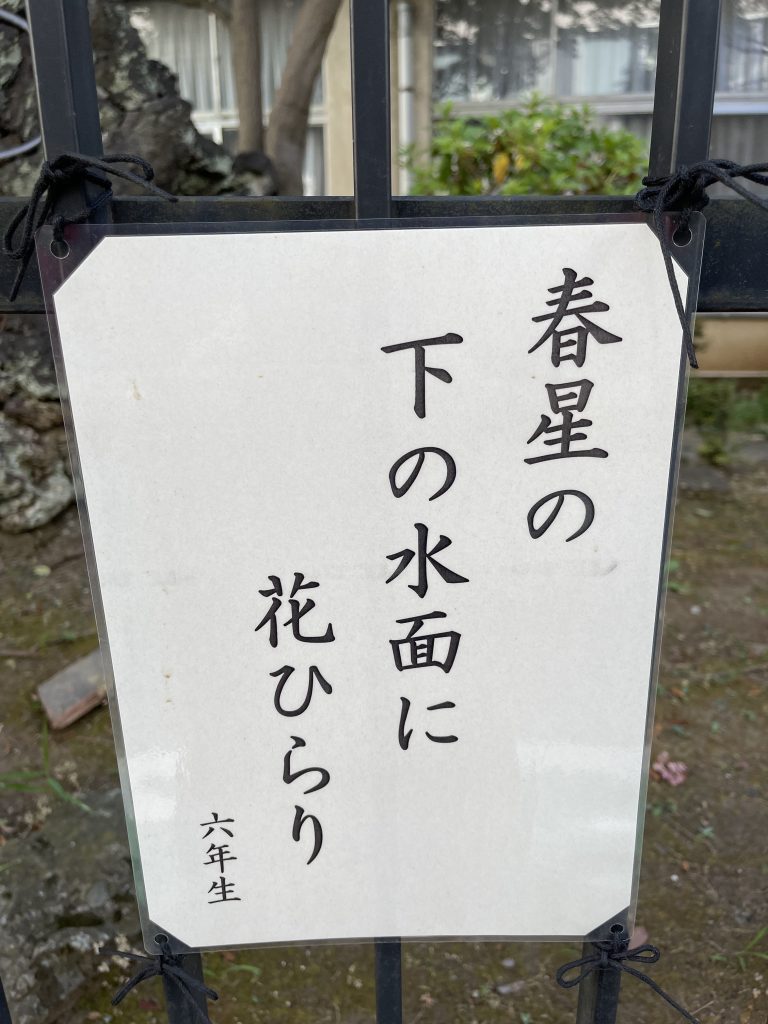 春星の
下の水面に
花ひらり
六年生